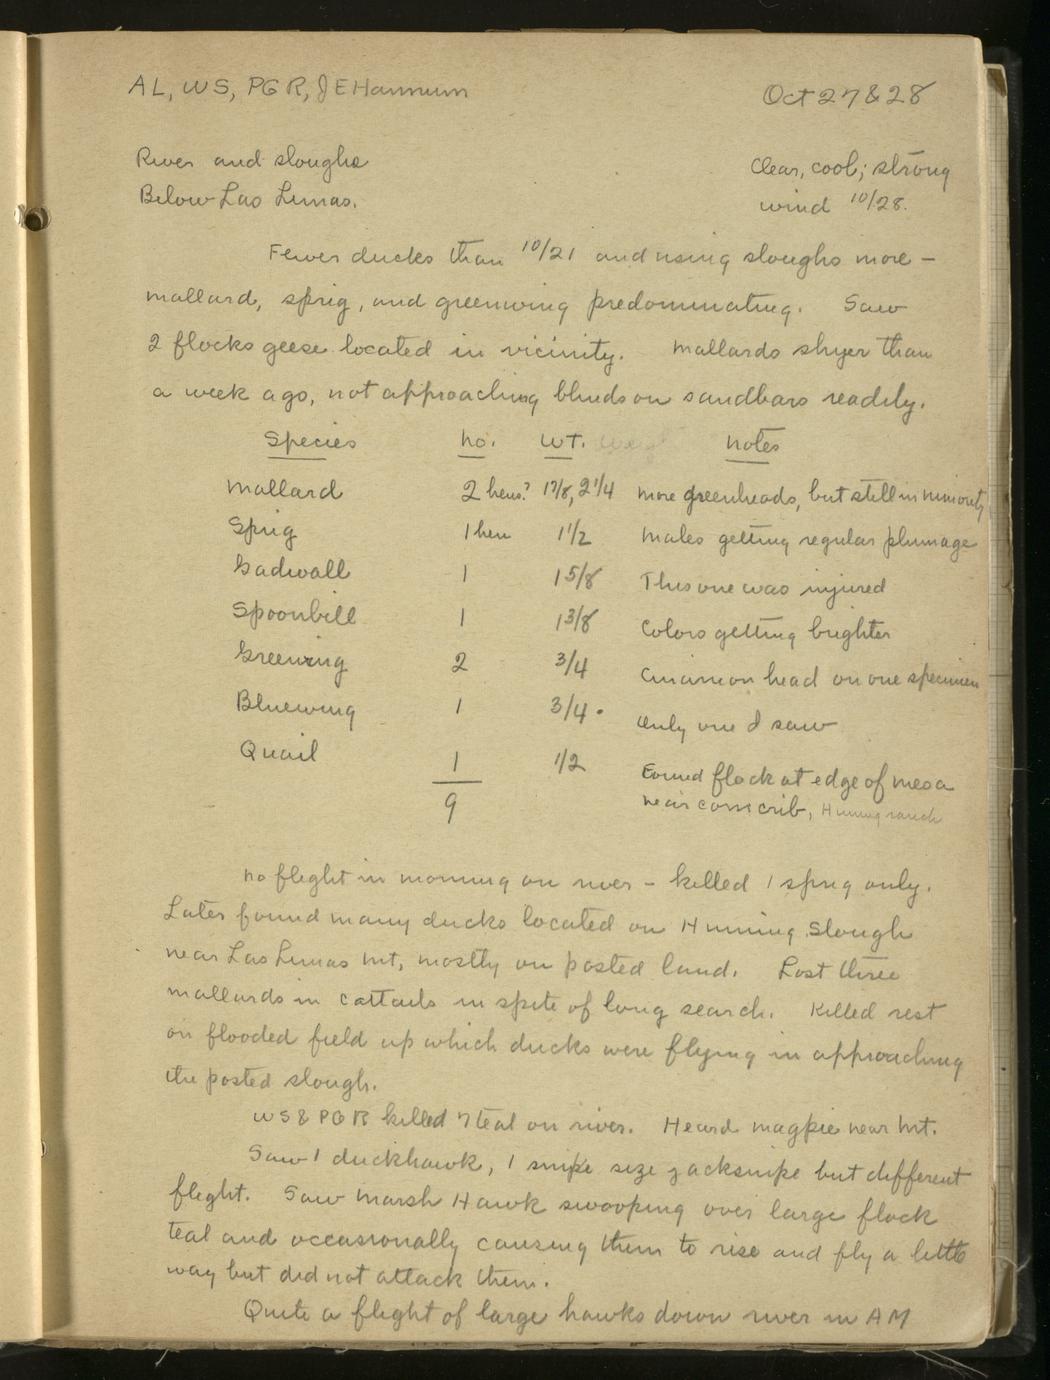 AL, WS, PGR, JEHannum
Oct 27 & 28
River and sloughs
Below Los Lunas.
Clear, cool; strong
wind 10/28.
Fewer ducks than 10/21 and using sloughs more –
mallard, sprig, and greenwing predominating. Saw
2 flocks geese located in vicinity. Mallards shyer than
a week ago, not approaching blinds on sandbars readily.
Species no. wt. notes
Mallard 2 hens? 1 7/8, 2 1/4 more greenheads, but still in minority
Sprig 1 hen 1 1/2 Males getting regular plumage
Gadwall 1 1 5/8 This one was injured
Spoonbill 1 1 3/8 Colors getting brighter
Greenwing 2 3/4 Cinnamon head on one specimen
Bluewing 1 3/4 Only one I saw
Quail 1 1/2 Found flock at edge of mesa
near corncrib, Huning ranch
9
No flight in morning on river – killed 1 sprig only.
Later found many ducks located on Huning Slough
near Los Lunas mt, mostly on posted land. Lost three
mallards in cattails in spite of long search. Killed rest
on flooded field up which ducks were flying in approaching
the posted slough.
WS & PGR killed 7 teal on river. Heard magpie near mt.
Saw 1 duckhawk, 1 snipe size jacksnipe but different
flight. Saw Marsh Hawk swooping over large flock
teal and occasionally causing them to rise and fly a little
way but did not attack them.
Quite a flight of large hawks down river in AM